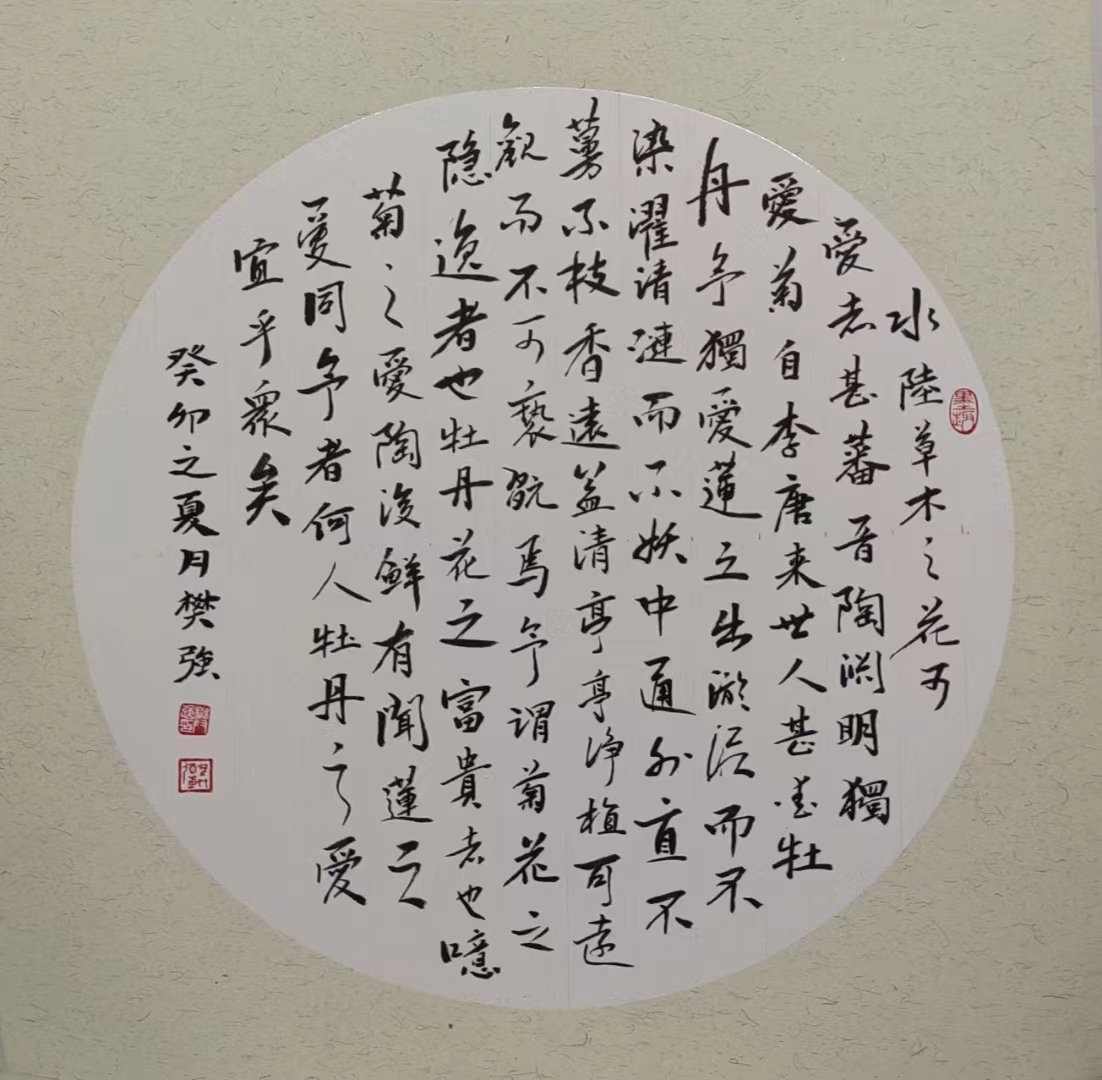 水陸草木之花可
愛者甚蕃晋陶渕明獨
愛菊自李唐来世人甚愛牡
丹予獨愛蓮之出淤泥而不
染濯清漣而不妖中通外直不
蔓不枝香遠益清亭亭净植可遠
觀而不可褻翫焉予謂菊花之
隐逸者也牡丹花之富貴者也噫
菊之愛陶後鮮有聞蓮之
愛同予者何人牡丹之愛
宜乎眾矣
癸卯之夏月樊強